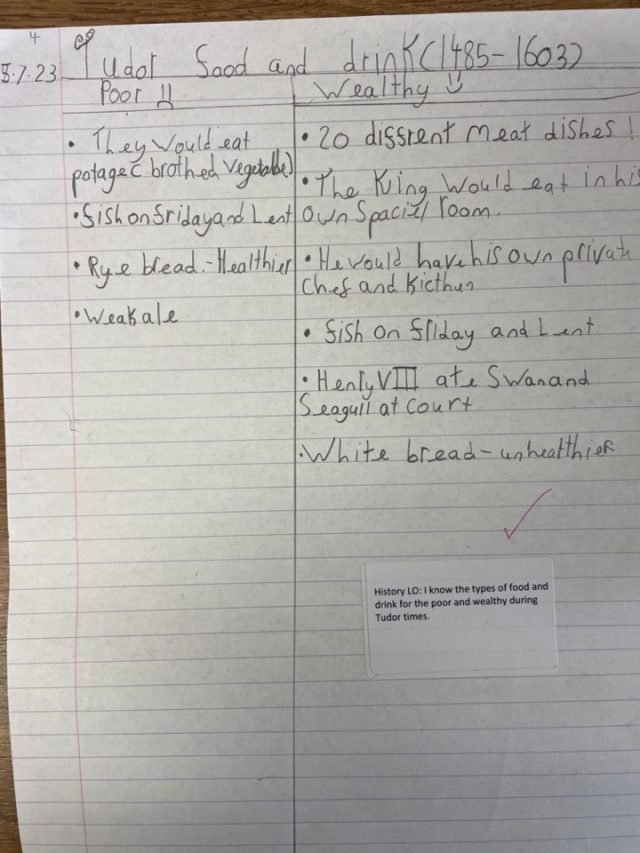 4
5.7.23 Tudor Food and drink (1485-1603)
Poor
Wealthy
• They would eat
potage( brothed vegetable)
• fish on friday and Lent
• Rye bread.-Healthier
• Weak ale
• 20 diffrent meat dishes!
• The King would eat in his
own Spaciel room.
• He would have his own private
chef and kicthun
• fish on friday and Lent
• Henry VIII ate Swan and
Seagull at court
• White bread - unhealthier
History LO: I know the types of food and
drink for the poor and wealthy during
Tudor times.